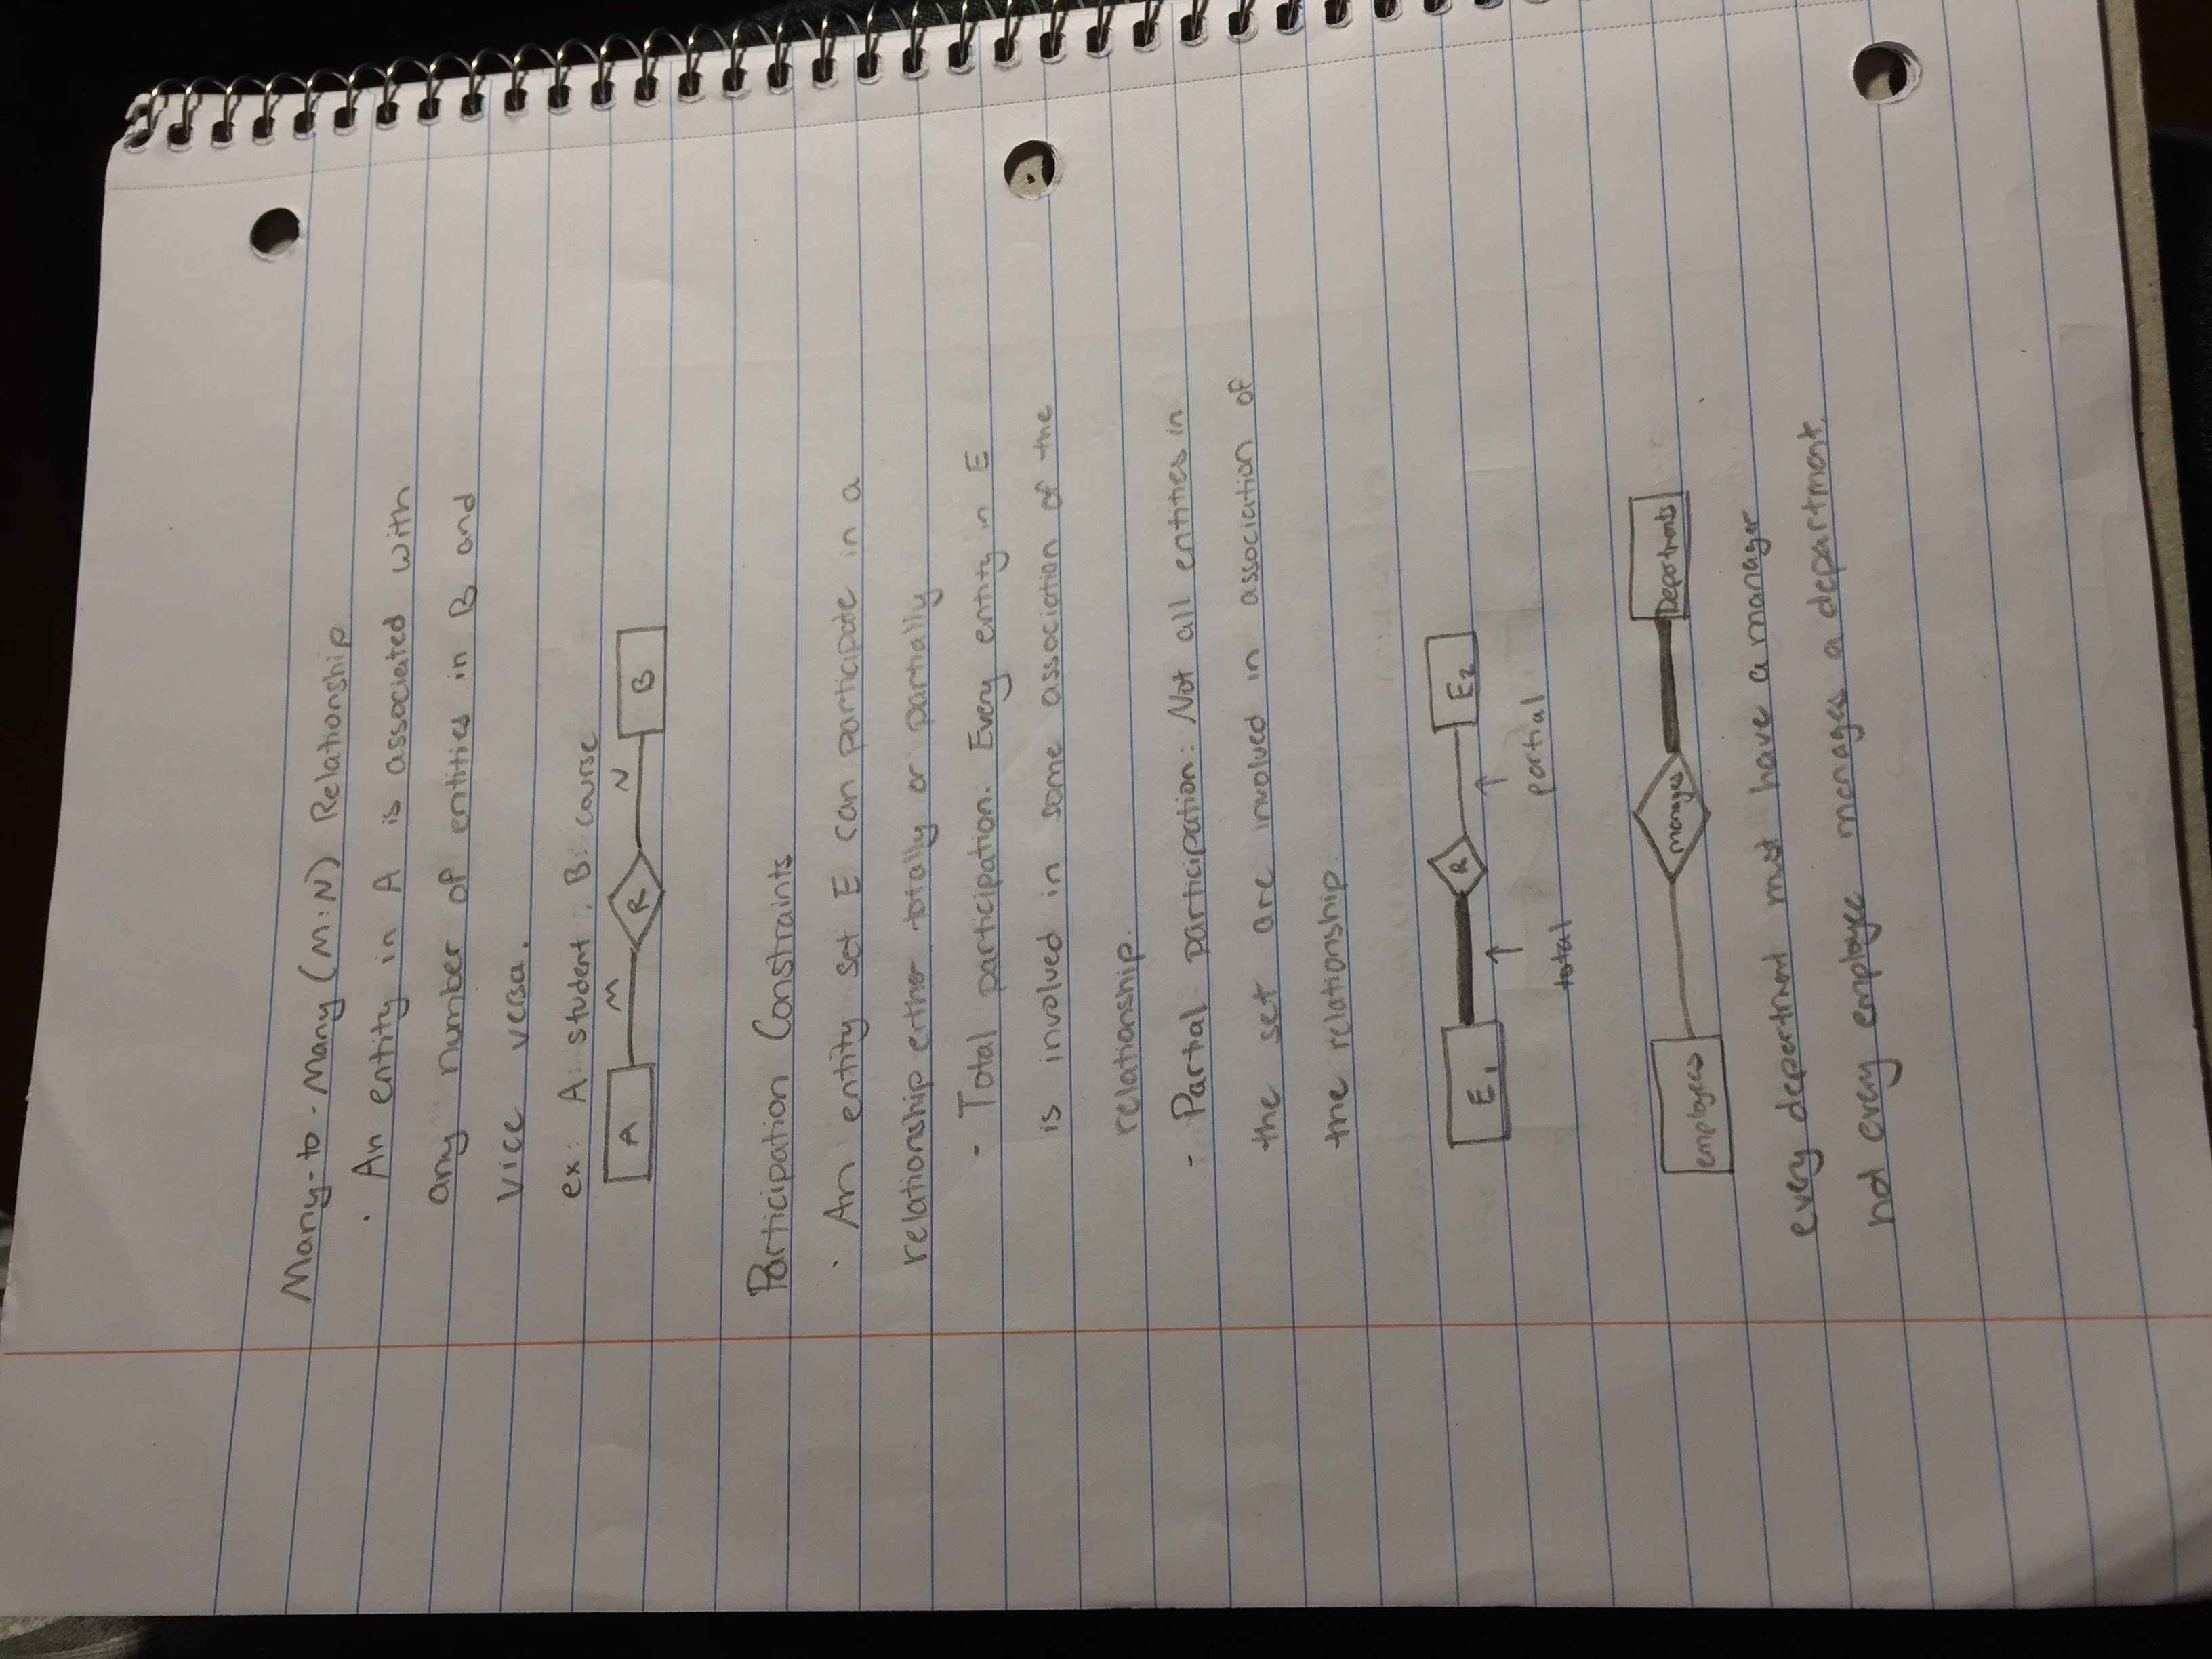 Many-to-Many (M:N) Relationship
· An entity in A is associated with
any number of entities in B and
vice versa.
ex: A: student, B: course
A M R N B
Participation Constraints
· An entity set E can participate in a
relationship either totally or partially
- Total participation. Every entity in E
is involved in some association of the
relationship.
- Partial participation: Not all entities in
the set are involved in association of
the relationship
E1 R E2
total partial
employees manages Departments
every department must have a manager
not every employee manages a department.